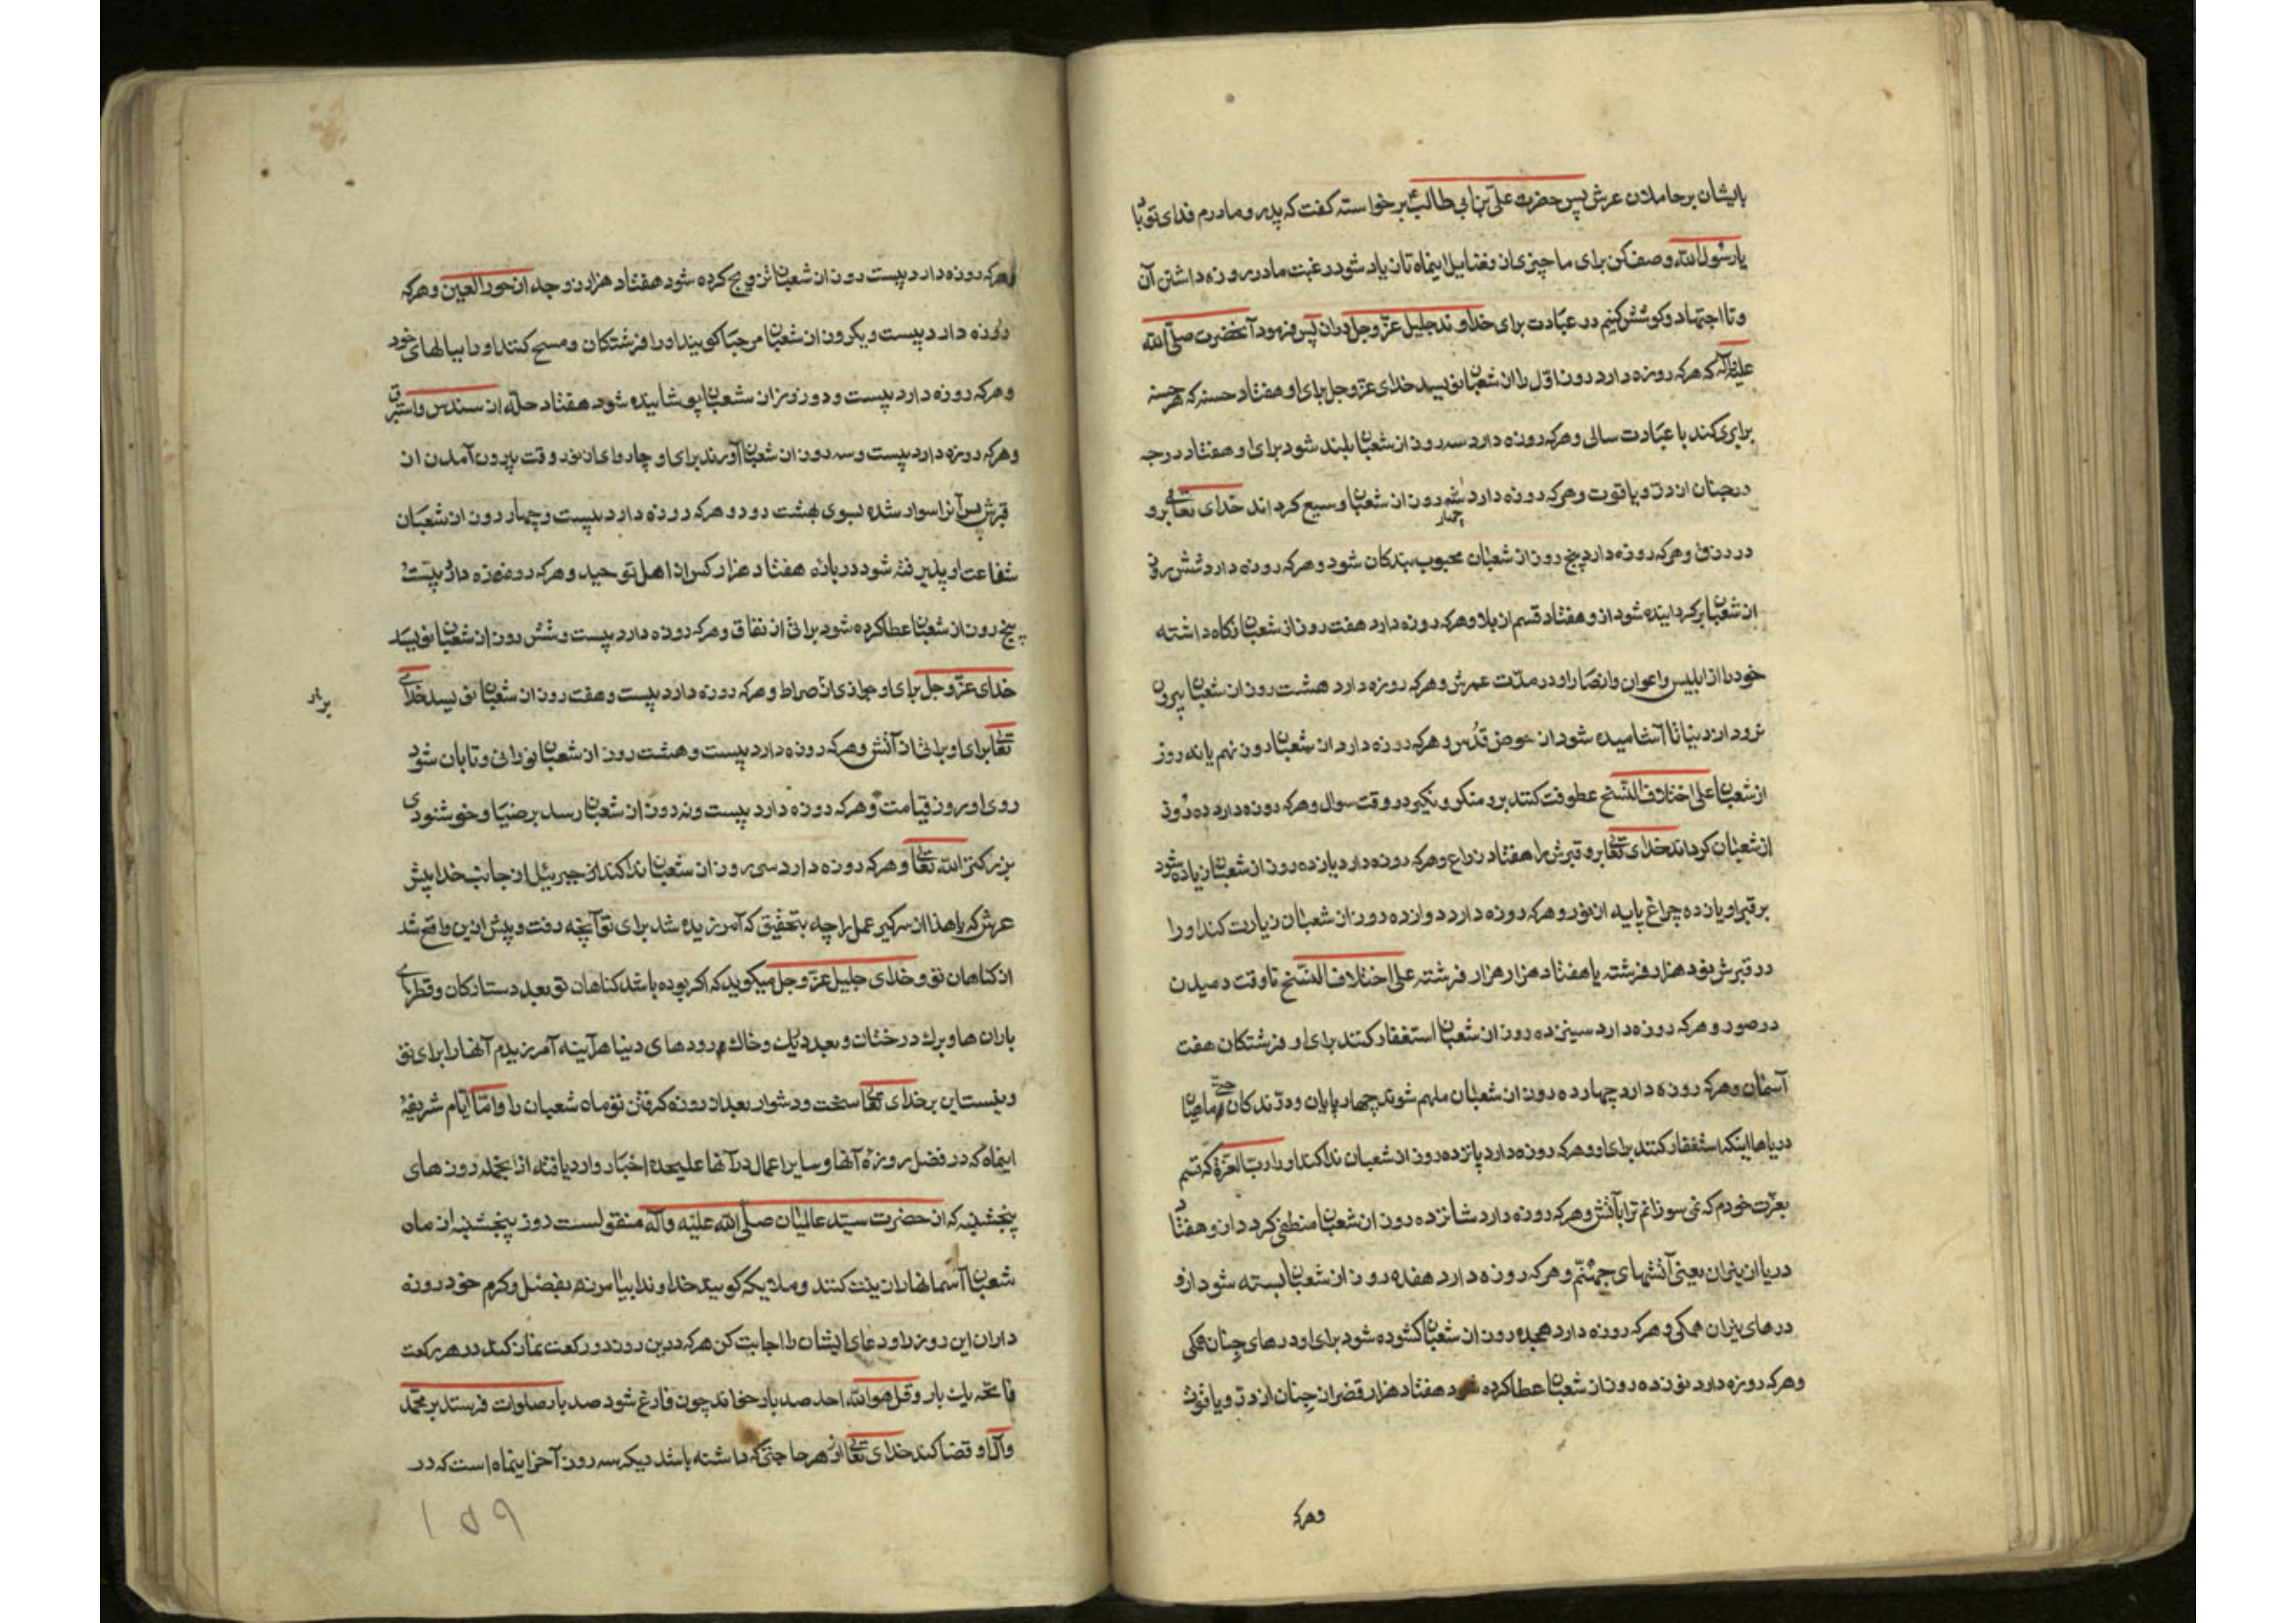 بایشان بر حاملان عرش پس حضرت علی بن ابی طالبؑ برخواسته کفت که پدر و مادرم فدای تو باد
یا رسول الله وصف کن برای ما چیزی از فضایل اینماه تا زیاد شود رغبت ما در روزه داشتن آن
و تا اجتهاد و کوشش کنیم در عبادت برای خداوند جلیل عزّ و جل دران پس فرمود آنحضرت صلّی الله
علیه و آله که هرکه روزه دارد روز اوّل را از شعبان نویسد خدای عزّ و جل برای او هفتاد حسنه که هر حسنه
برابری کند با عبادت سالی و هرکه روزه دارد سه روز از شعبان بلند شود برای او هفتاد درجه
در جنان از درّ و یاقوت و هرکه روزه دارد چهار روز از شعبان وسیع کرداند خدای تعالی برو
در رزق و هرکه روزه دارد پنج روز از شعبان محبوب بندکان شود و هرکه روزه دارد شش روز
از شعبان برکردانیده شود ازو هفتاد قسم از بلا و هرکه روزه دارد هفت روز از شعبان نکاه داشته
خود را از ابلیس و اعوان و انصار او در مدّت عمرش و هرکه روزه دارد هشت روز از شعبان بیرون
نرود از دنیا تا آشامیده شود از حوض قدس و هرکه روزه دارد از شعبان روز نهم یا نه روز
از شعبان علی اختلاف النّسخ عطوفت کنند برو منکر و نکیر در وقت سوال و هرکه روزه دارد ده روز
از شعبان کرداند خدای تعالی برو قبرش را هفتاد ذراع و هرکه روزه دارد یازده روز از شعبان زیاده شود
بر قبر او یازده چراغ پایه از نور و هرکه روزه دارد دوازده روز از شعبان زیارت کند او را
در قبرش نود هزار فرشته یا هفتاد هزار هزار فرشته علی اختلاف النّسخ تا وقت دمیدن
در صور و هرکه روزه دارد سینزده روز از شعبان استغفار کنند برای او فرشتکان هفت
آسمان و هرکه روزه دارد چهارده روز از شعبان ملهم شوند چهار پایان و درّندکان حتّی ماهیان
دریاها اینکه استغفار کنند برای او و هرکه روزه دارد پانزده روز از شعبان ندا کند او را ربّ العزّة که قسم
بعزّت خودم که نمی سوزانم ترا بآتش و هرکه روزه دارد شانزده روز از شعبان منطفی کردد ازو هفتاد
دریا از نیران یعنی آتشهای جهنّم و هرکه روزه دارد هفده روز از شعبان بسته شود ازو
درهای نیران همکی و هرکه روزه دارد هجده روز از شعبان کشوده شود برای او درهای جنان همکی
و هرکه روزه دارد نوزده روز از شعبان عطا کرده شود هفتاد هزار قصر از جنان از درّ و یاقوت
وهرکه
و هرکه روزه دارد بیست روز از شعبان تزویج کرده شود هفتاد هزار زوجه از حور العین و هرکه
روزه دارد بیست و یکروز از شعبان مرحبا کویند او را فرشتکان و مسح کنند او را ببالهای خود
و هرکه روزه دارد بیست و دو روز از شعبان پوشانیده شود هفتاد حلّه از سندس و استبرق
و هرکه روزه دارد بیست و سه روز از شعبان آورند برای او چاروای از نور وقت بیرون آمدن از
قبرش پس آنرا سوار شده بسوی بهشت رود و هرکه روزه دارد بیست و چهار روز از شعبان
شفاعت او پذیرفته شود در باره هفتاد هزار کس از اهل توحید و هرکه روزه دارد بیست و
پنج روز از شعبان عطا کرده شود براتی از نفاق و هرکه روزه دارد بیست و شش روز از شعبان نویسد
خدای عزّ و جل برای او جوازی از صراط و هرکه روزه دارد بیست و هفت روز از شعبان نویسد خدای
تعالی برای او براتی از آتش و هرکه روزه دارد بیست و هشت روز از شعبان نورانی و تابان شود
روی او روز قیامت و هرکه روزه دارد بیست و نه روز از شعبان رسد برضا و خوشنودی
بزرکتر الله تعالی و هرکه روزه دارد سی روز از شعبان ندا کند جبرئیل از جانب خدا پیش
عرش که یا هذا از سر کیر عمل را چه بتحقیق که آمرزیده شد برای تو آنچه رفت و پیش ازین واقع شد
از کناهان تو و خدای جلیل عزّ و جل میکوید که اکر بوده باشد کناهان تو بعدد ستارکان و قطرهای
باران ها و برك درختان و بعدد ریك و خاك و رودهای دنیا هرآینه آمرزیدم آنها را برای تو
و نیست این بر خدای تعالی سخت و دشوار بعد از روزه کرفتن تو ماه شعبان را و امّا ایّام شریفهٔ
اینماه که در فضل روزهٔ آنها و سایر اعمال در آنها علیحده اخبار وارد یافته از آنجمله روزهای
پنجشنبه که از حضرت سیّد عالمیان صلّی الله علیه و آله منقولست روز پنجشنبه از ماه
شعبان آسمانها را زینت کنند و ملایکه کویند خداوندا بیامرز بفضل و کرم خود روزه
داران این روز را و دعای ایشان را اجابت کن هرکه درین روز دو رکعت نماز کند در هر رکعت
فاتحه یك بار و قل هو الله احد صد بار خواند چون فارغ شود صد بار صلوات فرستد بر محمّد
و آل او قضا کند خدای تعالی از هر حاجتی که داشته باشد دیکر سه روز آخر اینماه است که در
۱۵۹